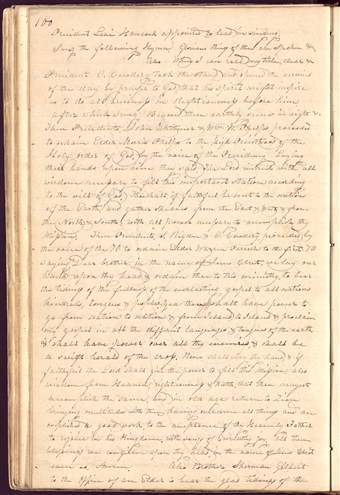 100
President Levi Hancock appointed to lead in singing.
Sung the following Hymn, Glorious things of thee are spoken &
Also. When I can read my title clear &
President O. Cowdery took the stand and opened the
of the day by prayer to God, that his spirit might inspire
us to do all business in Righteousness before him
After which Sung, Beyond these earthly scenes in sight &
Then Presidents John Whitmer & Wm W. Phelps proceeded
to ordain Elder Morris Phelps to the high Priesthood of the
Holy order of God, by the voice of the Presidency. Laying
their hands upon him they said, The Lord intrust with all
wisdom necessary to fill this important station according
to the will of God, that thou shalt if faithful be sent to the nations
of the Earth and gather Israel from the East, & West, & from
the North, & South, with all power necessary to accomplish thy
Mission. Then Presidents S. Rigdon & O. Cowdery proceeded, by
the voice of the 70 to ordain Elder Warren Parrish to the 70
saying, Dear brother, in the name of Jesus Christ, we lay our
hands upon thy head & ordain thee to this ministry, to bear
the tidings of the fulness of the everlasting gospel to all nations
kindreds, tongues & people, yea thou shalt have power to
go from nation to nation & from Island to Island & proclaim
gospel in all the different languages & tongues of the earth
& shall have power over all thy enemies, & shall be
a swift herald of the cross. Now thy hand & if
faithful the Lord shall give thee power to fill this mission, thy
mission from Heaven, righteousness & truth, that thou mayest
accomplish the same, and in old age return to Zion
bringing multitudes with thee, having overcome all things and
accomplished a good work to the acceptance of thy Heavenly Father
to rejoice in his Kingdom, with songs of everlasting joy, all these
blessings we confirm upon thy head in the name of Jesus Christ
even so, Amen. Also brother Sherman Gilbert
to the Office of an Elder to bear the glad tidings of the